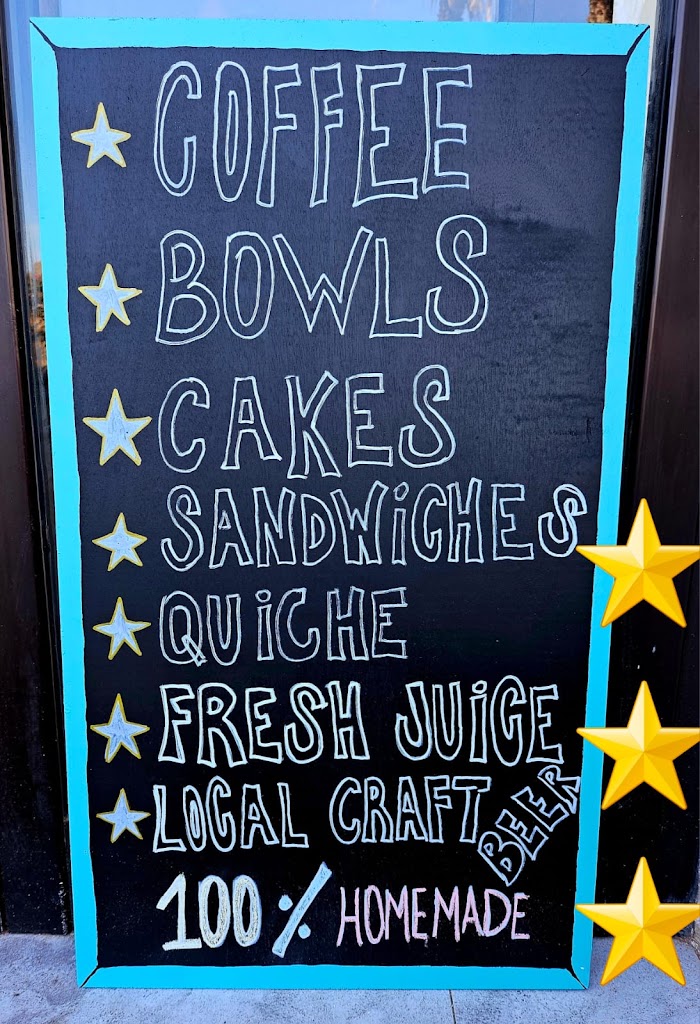 COFFEE
BOWLS
CAKES
SANDWiCHES
QUiCHE
FRESH JUiCE
LOCAL CRAFT BEER
100% HOMEMADE